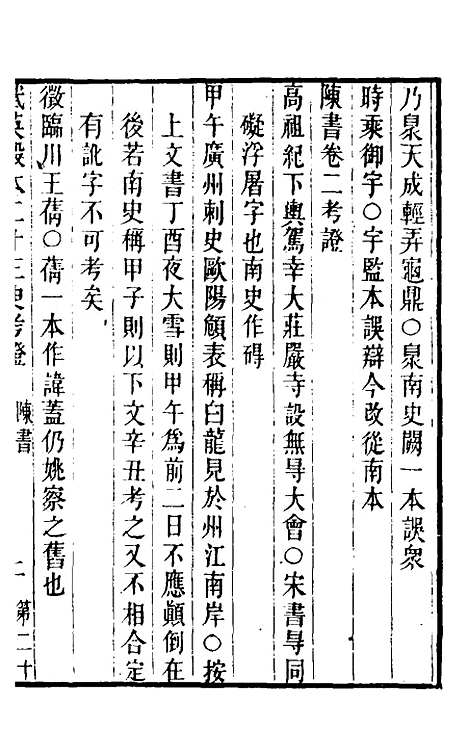 乃梟天成輕弄龜鼎○梟南史闕一本誤衆
時乘御宇○宇監本誤辯今改從南本
陳書卷二考證
高祖紀下輿駕幸大莊嚴寺設無㝵大會○宋書㝵同
礙浮屠字也南史作碍
甲午廣州刺史歐陽頠表稱白龍見於州江南岸○按
上文書丁酉夜大雪則甲午爲前二日不應顚倒在
後若南史稱甲子則以下文辛丑考之又不相合定
有訛字不可考矣
徵臨川王蒨○蒨一本作諱蓋仍姚察之舊也
武英殿本二十三史考證 陳書 二 第二十